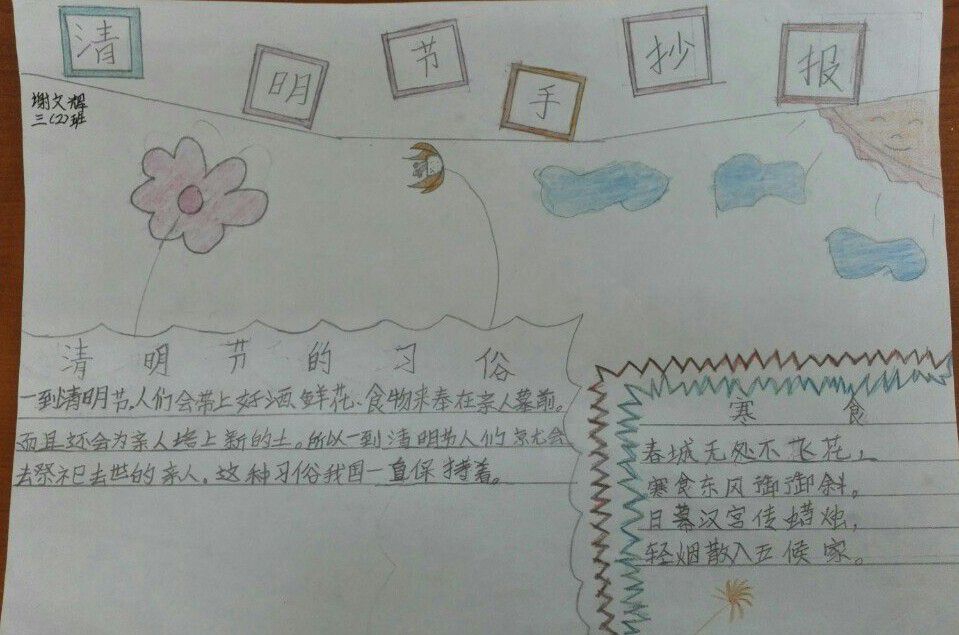 清明节手抄报
谢文辉
三(2)班
清明节的习俗
一到清明节,人们会带上好酒、鲜花、食物来奉在亲人墓前。
而且还会为亲人培上新的土。所以一到清明节人们就会
去祭祀去世的亲人。这种习俗我国一直保持着。
寒食
春城无处不飞花,
寒食东风御御斜。
日暮汉宫传蜡烛,
轻烟散入五候家。